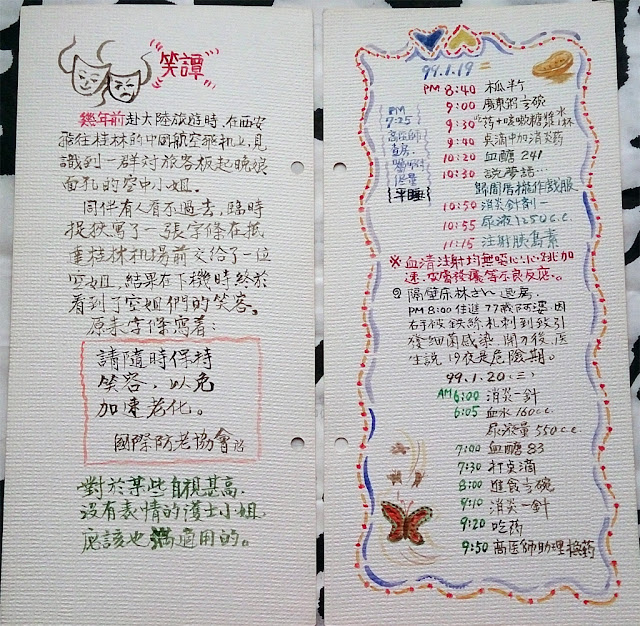 笑譚
幾年前赴大陸旅遊時,在西安
飛往桂林的中國航空飛机上,見
識到一群对旅客板起晚娘
面孔的空中小姐。
同伴有人看不過去,臨時
捉狹寫了一張字條在抵
達桂林机場前交給了一位
空姐,結果在下機時終於
看到了空姐們的笑容。
原來字條寫着:
請隨時保持
笑容,以免
加速老化。
國際防老協會
對於某些自視甚高
沒有表情的護士小姐
應該也適用的。
99.1.19 二
PM 8:40 木瓜半个
9:00 廣東粥
9:30
9:40 点滴中加消炎药
10:20 血醣 241
10:30 說夢話…
10:50 消炎針劑一
10:55 尿液1250 c.c.
11:15 注射胰島素
PM
7:25
查房.
平睡
※血清注射均無噁心.心跳加
速.皮膚搔癢等不良反應。
隔壁床林さん退房
PM 8:00 住進77歲阿婆.因
右手被鐵絲札刺到致引
發細菌感染.開刀後.医
生說19夜是危險期。
99.1.20 (三)
AM 6:00 消炎一針
6:05 血水160 c.c.
尿液量550 c.c.
7:00 血醣 83
7:30 打点滴
8:00 進食
9:10 消炎一針
9:20 吃药
9:50 高医師助理換药